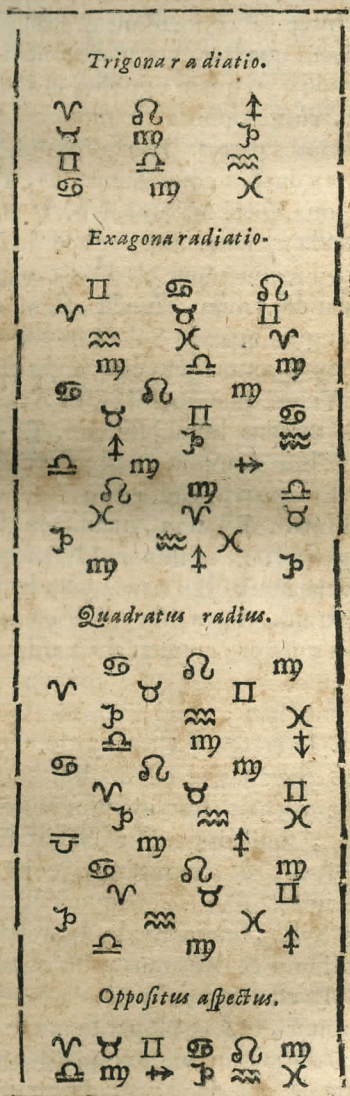 Trigona radiatio.
♈ ♌ ♐
♉ ♍ ♑
♊ ♎ ♒
♋ ♍ ♓
Exagona radiatio.
♊ ♋ ♌
♈ ♉ ♊
♒ ♓ ♈
♍ ♎ ♍
♋ ♌ ♍
♉ ♊ ♋
♐ ♑ ♒
♎ ♍ ♐
♌ ♍ ♎
♓ ♈ ♉
♑ ♒ ♓
♍ ♐ ♑
Quadratus radius.
♋ ♌ ♍
♈ ♉ ♊
♑ ♒ ♓
♎ ♍ ♐
♋ ♌ ♍
♈ ♉ ♊
♑ ♒ ♓
♎ ♍ ♐
♋ ♌ ♍
♈ ♉ ♊
♑ ♒ ♓
♎ ♍ ♐
Oppoſitus aſpectus.
♈ ♉ ♊ ♋ ♌ ♍
♎ ♍ ♐ ♑ ♒ ♓